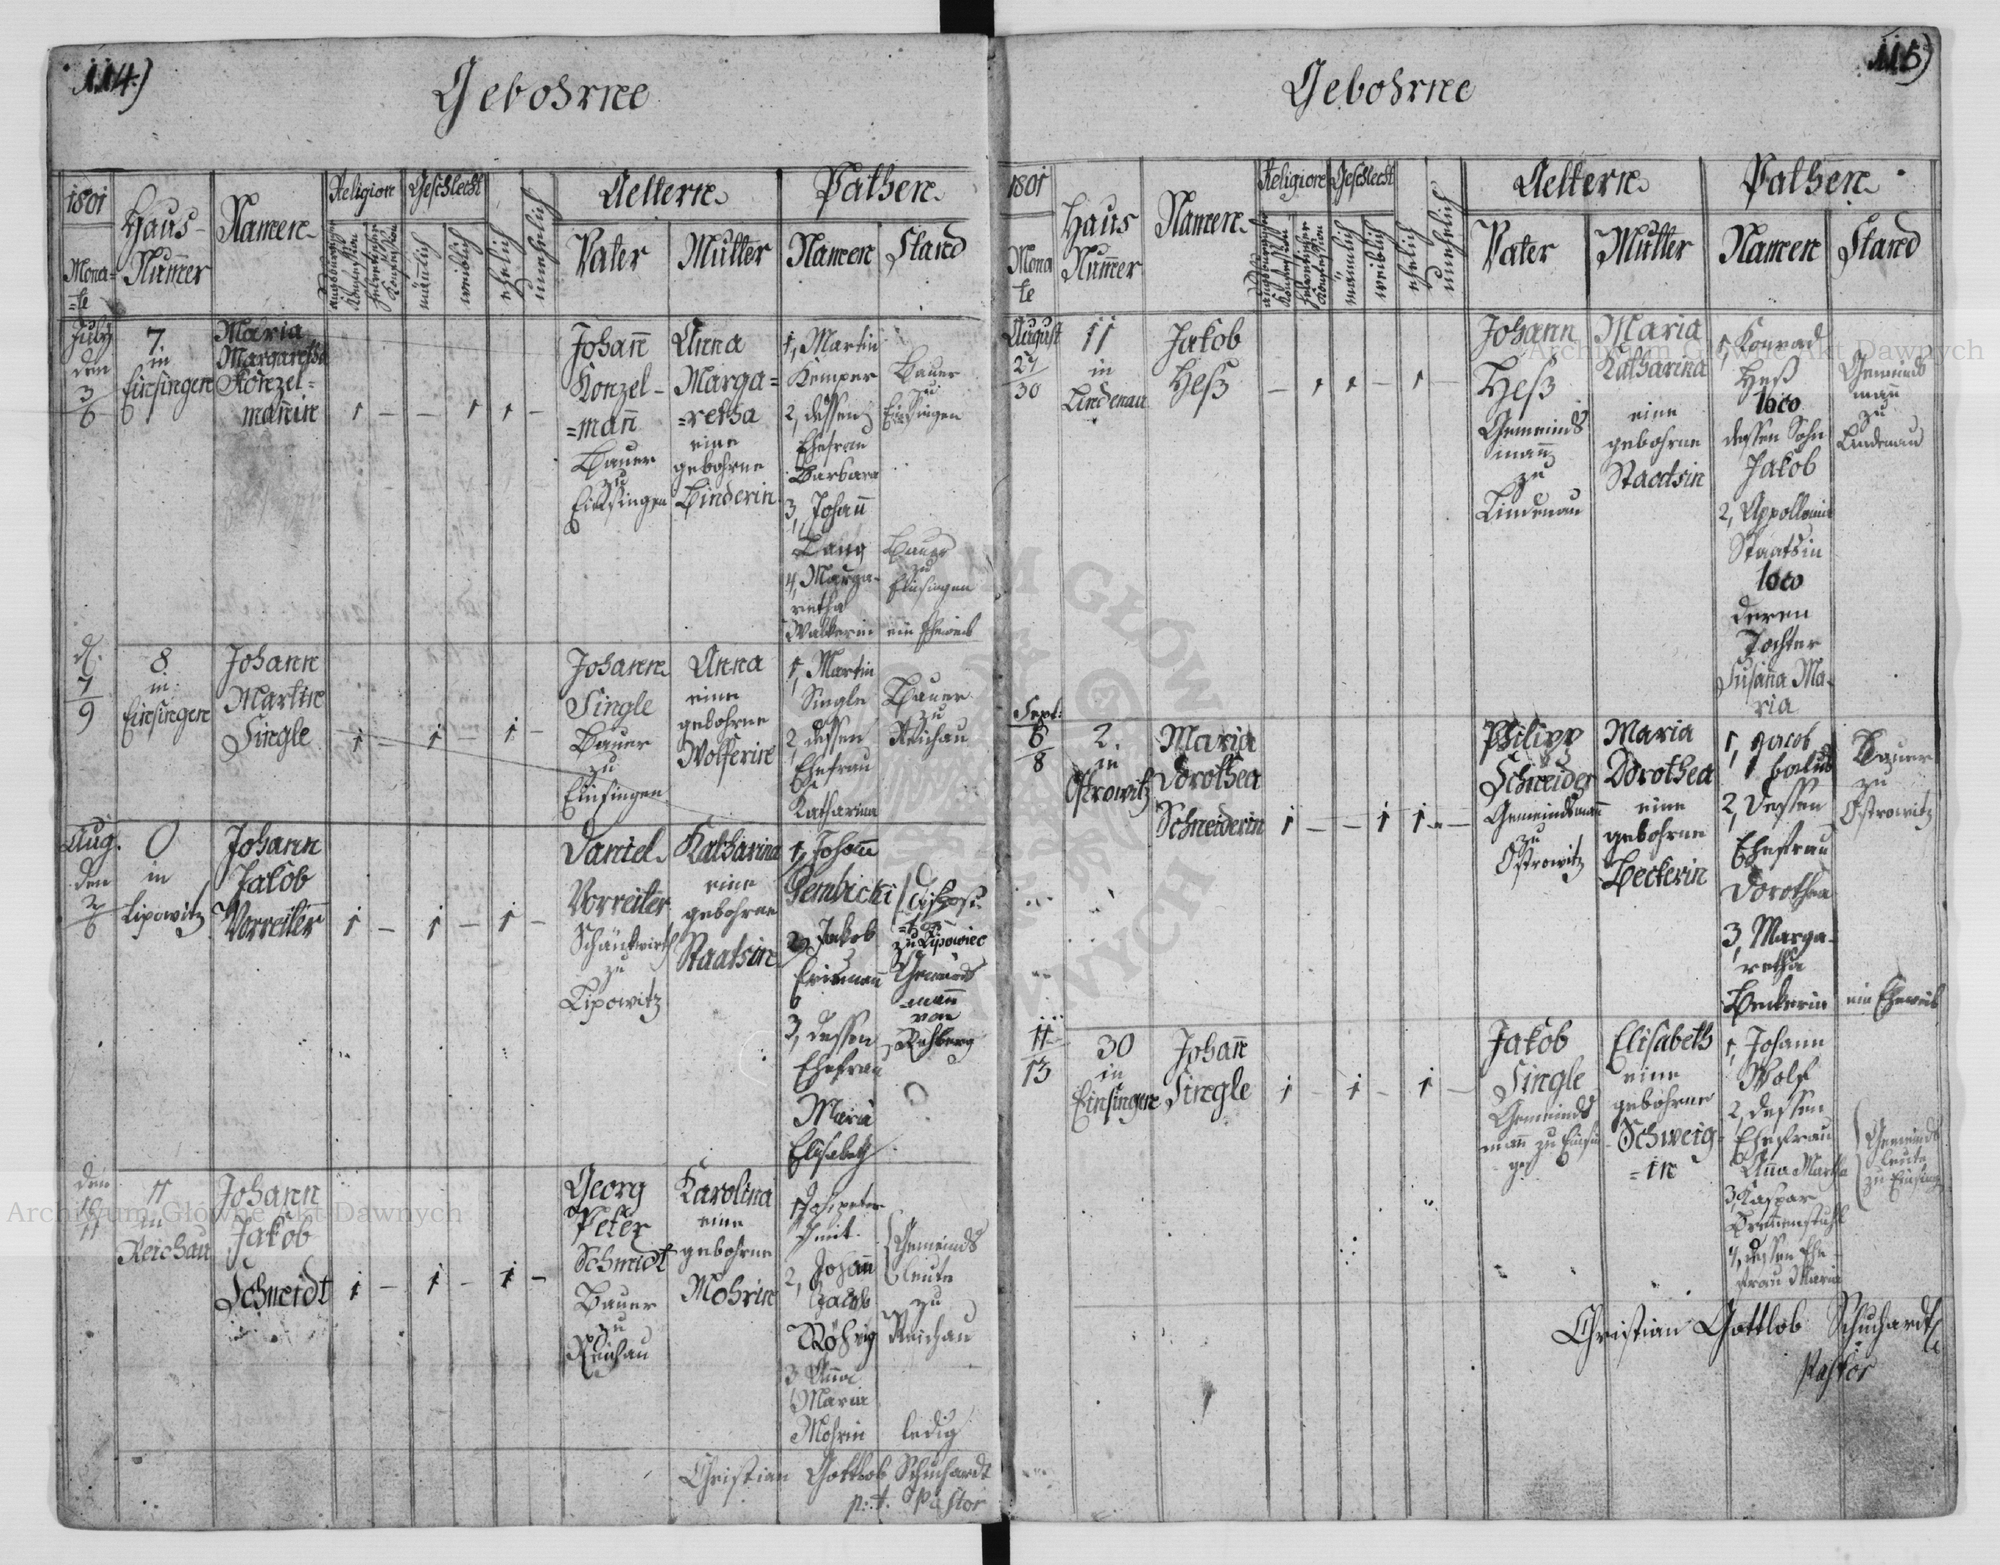 114.)
Gebohrne
1801
Mona=
=te
Haus-
Nummer
Namen
Religion
Geschlecht
männlich
weiblich
ehelich
unehelich
Aeltern
Vater
Mutter
Pathen
Namen
Stand
July
den
3
6
7.
in
Einsingen
Maria
Margaretha
Konzel=
mannin
1 – – 1 1 –
Johann
Konzel-
=mann
Bauer
zu
Einsingen
Anna
Marga=
=retha
eine
gebohrne
Binderin
1, Martin
Kemper
2, dessen
Ehefrau
Barbara
3, Johann
Lang
4, Marga-
retha
Walterin
Bauer
zu
Einsingen
Bauer
zu
Einsingen
ein Eheweib
d.
7
9
8
in
Einsingen
Johann
Martin
Single
1 – 1 – 1 –
Johann
Single
Bauer
zu
Einsingen
Anna
eine
gebohrne
Wolferin
1, Martin
Single
2, dessen
Ehefrau
Katharina
Bauer
zu
Reichau
Aug.
den
2
6
0
in
Lipowitz
Johann
Jakob
Vorreiter
1 – 1 – 1 –
Daniel
Vorreiter
Schänkwirth
zu
Lipowitz
Katharina
eine
gebohrne
Staatsin
1, Johann
Gembicki
2, Jakob
3, dessen
Ehefrau
Maria
Elisabeth
zu Lipowiec
Gemeinds
-mann
von
Rehberg
den
10
11
11
in
Reichau
Johann
Jakob
Schmidt
1 – 1 – 1 –
Georg
Peter
Schmidt
Bauer
zu
Reichau
Karolina
eine
gebohrne
Mohrin
2, Johann
Jacob
Röhrig
3 Anna
Maria
Mohrin
Gemeinds
leute
zu
Reichau
ledig
Christian Gottlob Schuchardt
p: t. Pastor
115)
Gebohrne
1801
Mona
te
Haus
Nummer
Namen
Religion
Geschlecht
männlich
weiblich
ehelich
unehelich
Aeltern
Vater
Mutter
Pathen
Namen
Stand
August
27
30
11
in
Lindenau
Jakob
Heß
– 1 1 – 1 –
Johann
Heß
Gemeinds
mann
zu
Lindenau
Maria
Katharina
eine
gebohrne
Staatsin
1, Konrad
Heß
loco
dessen Sohn
Jakob
2, Appollonia
Staatsin
loco
deren
Tochter
Susana Ma-
ria
Gemeinds
mann
zu
Lindenau
Sept:
6
8
2.
in
Ostrowitz
Maria
Dorothea
Schneiderin
1 – – 1 1 –
Philipp
Schneider
Gemeindsmann
zu
Ostrowitz
Maria
Dorothea
eine
gebohrne
Beckerin
1, Jacob
2, dessen
Ehefrau
Dorothea
3, Marga-
retha
Beckerin
Bauer
zu
Ostrowitz
ein Eheweib
11
13
30
in
Einsingen
Johann
Single
1 – 1 – 1 –
Jakob
Single
Gemeinds
mann zu Einsin
gen
Elisabeth
eine
gebohrne
Schweig-
=in
1, Johann
Wolf
2, dessen
Ehefrau
Anna Martha
3, Kaspar
Bremenstuhl
4, dessen Ehe-
frau Maria
Gemeinds
leute
zu Einsingen
Christian Gottlob Schuchardt
Pastor
Archiwum Główne Akt Dawnych
Archiwum Główne Akt Dawnych